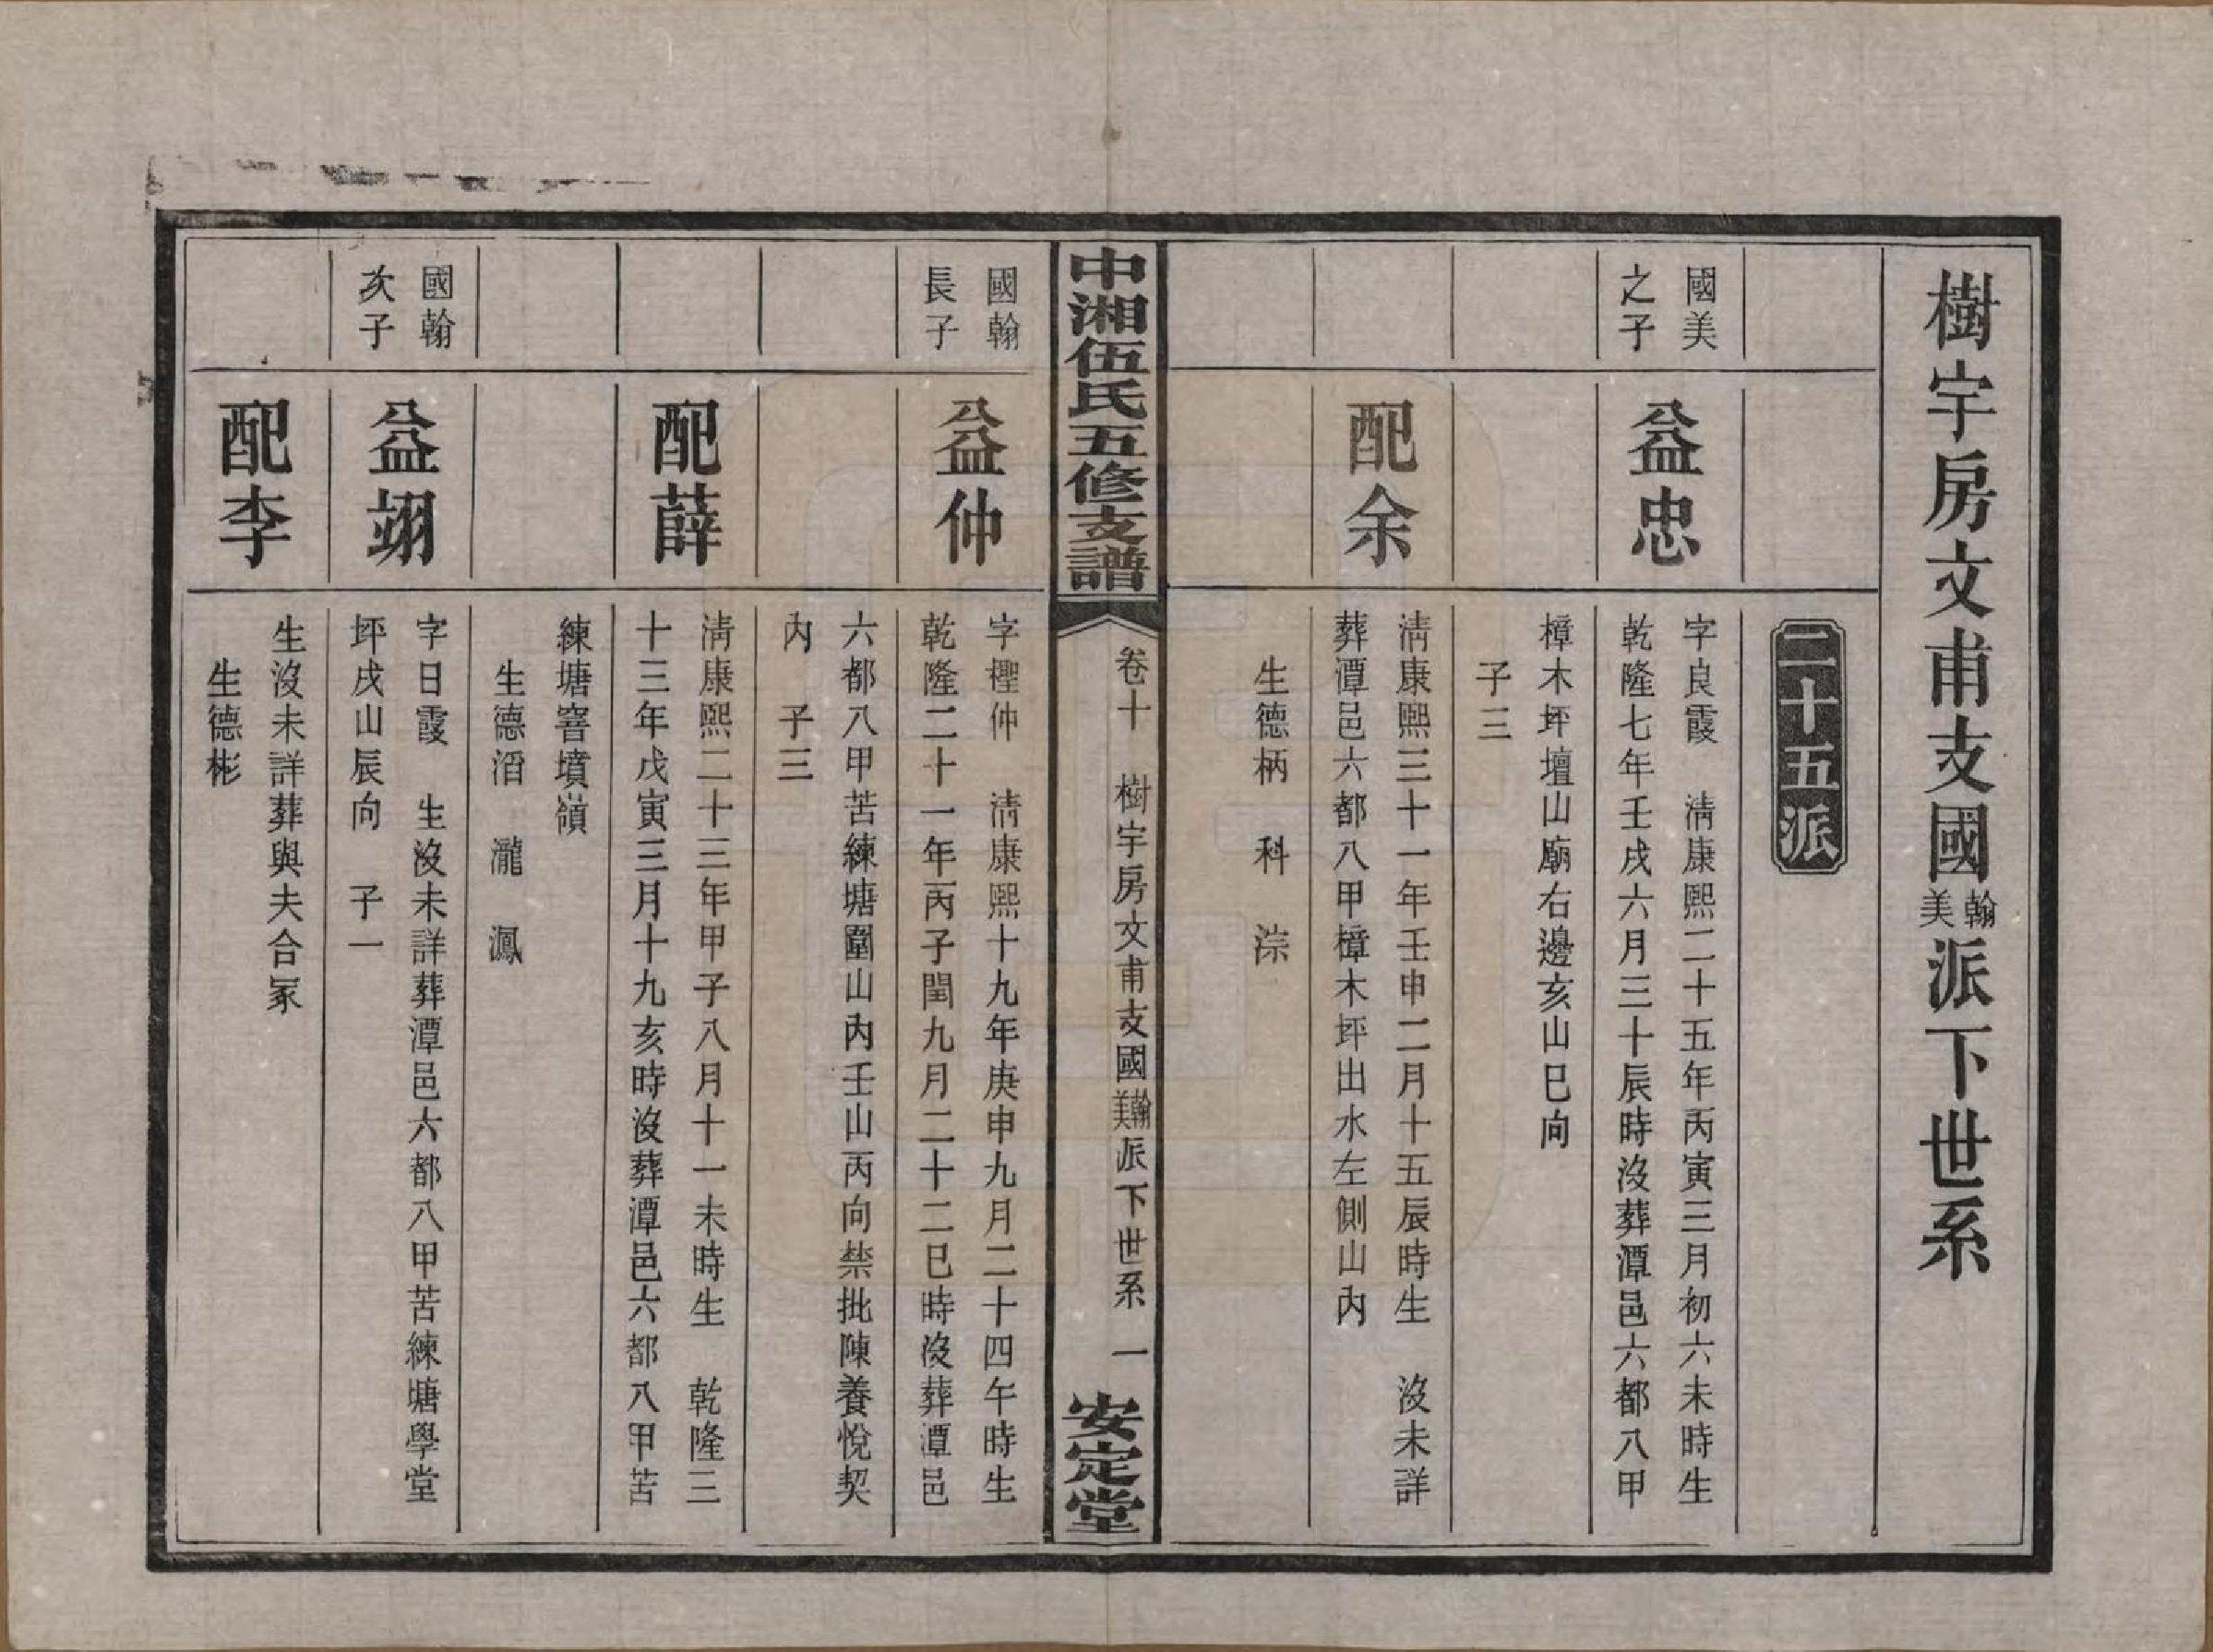 樹宇房文甫支國翰美派下世系
二十五派
國美
之子
益忠
字良霞　淸康熙二十五年丙寅三月初六未時生
乾隆七年壬戌六月三十辰時沒葬潭邑六都八甲
樟木坪壇山廟右邊亥山巳向
子三
配余
淸康熙三十一年壬申二月十五辰時生　沒未詳
葬潭邑六都八甲樟木坪出水左側山內
生德柄　科　淙
中湘伍氏五修支譜
卷十　樹宇房文甫支國翰美派下世系　一
安定堂
國翰
長子
益仲
字檉仲　淸康熙十九年庚申九月二十四午時生
乾隆二十一年丙子閏九月二十二巳時沒葬潭邑
六都八甲苦練塘圍山內壬山丙向禁批陳養悅契
內　子三
配薛
淸康熙二十三年甲子八月十一未時生　乾隆三
十三年戊寅三月十九亥時沒葬潭邑六都八甲苦
練塘窨墳嶺
生德滔　瀧　鳳
國翰
次子
益翊
字日霞　生沒未詳葬潭邑六都八甲苦練塘學堂
坪戌山辰向　子一
配李
生沒未詳葬與夫合冢
生德彬